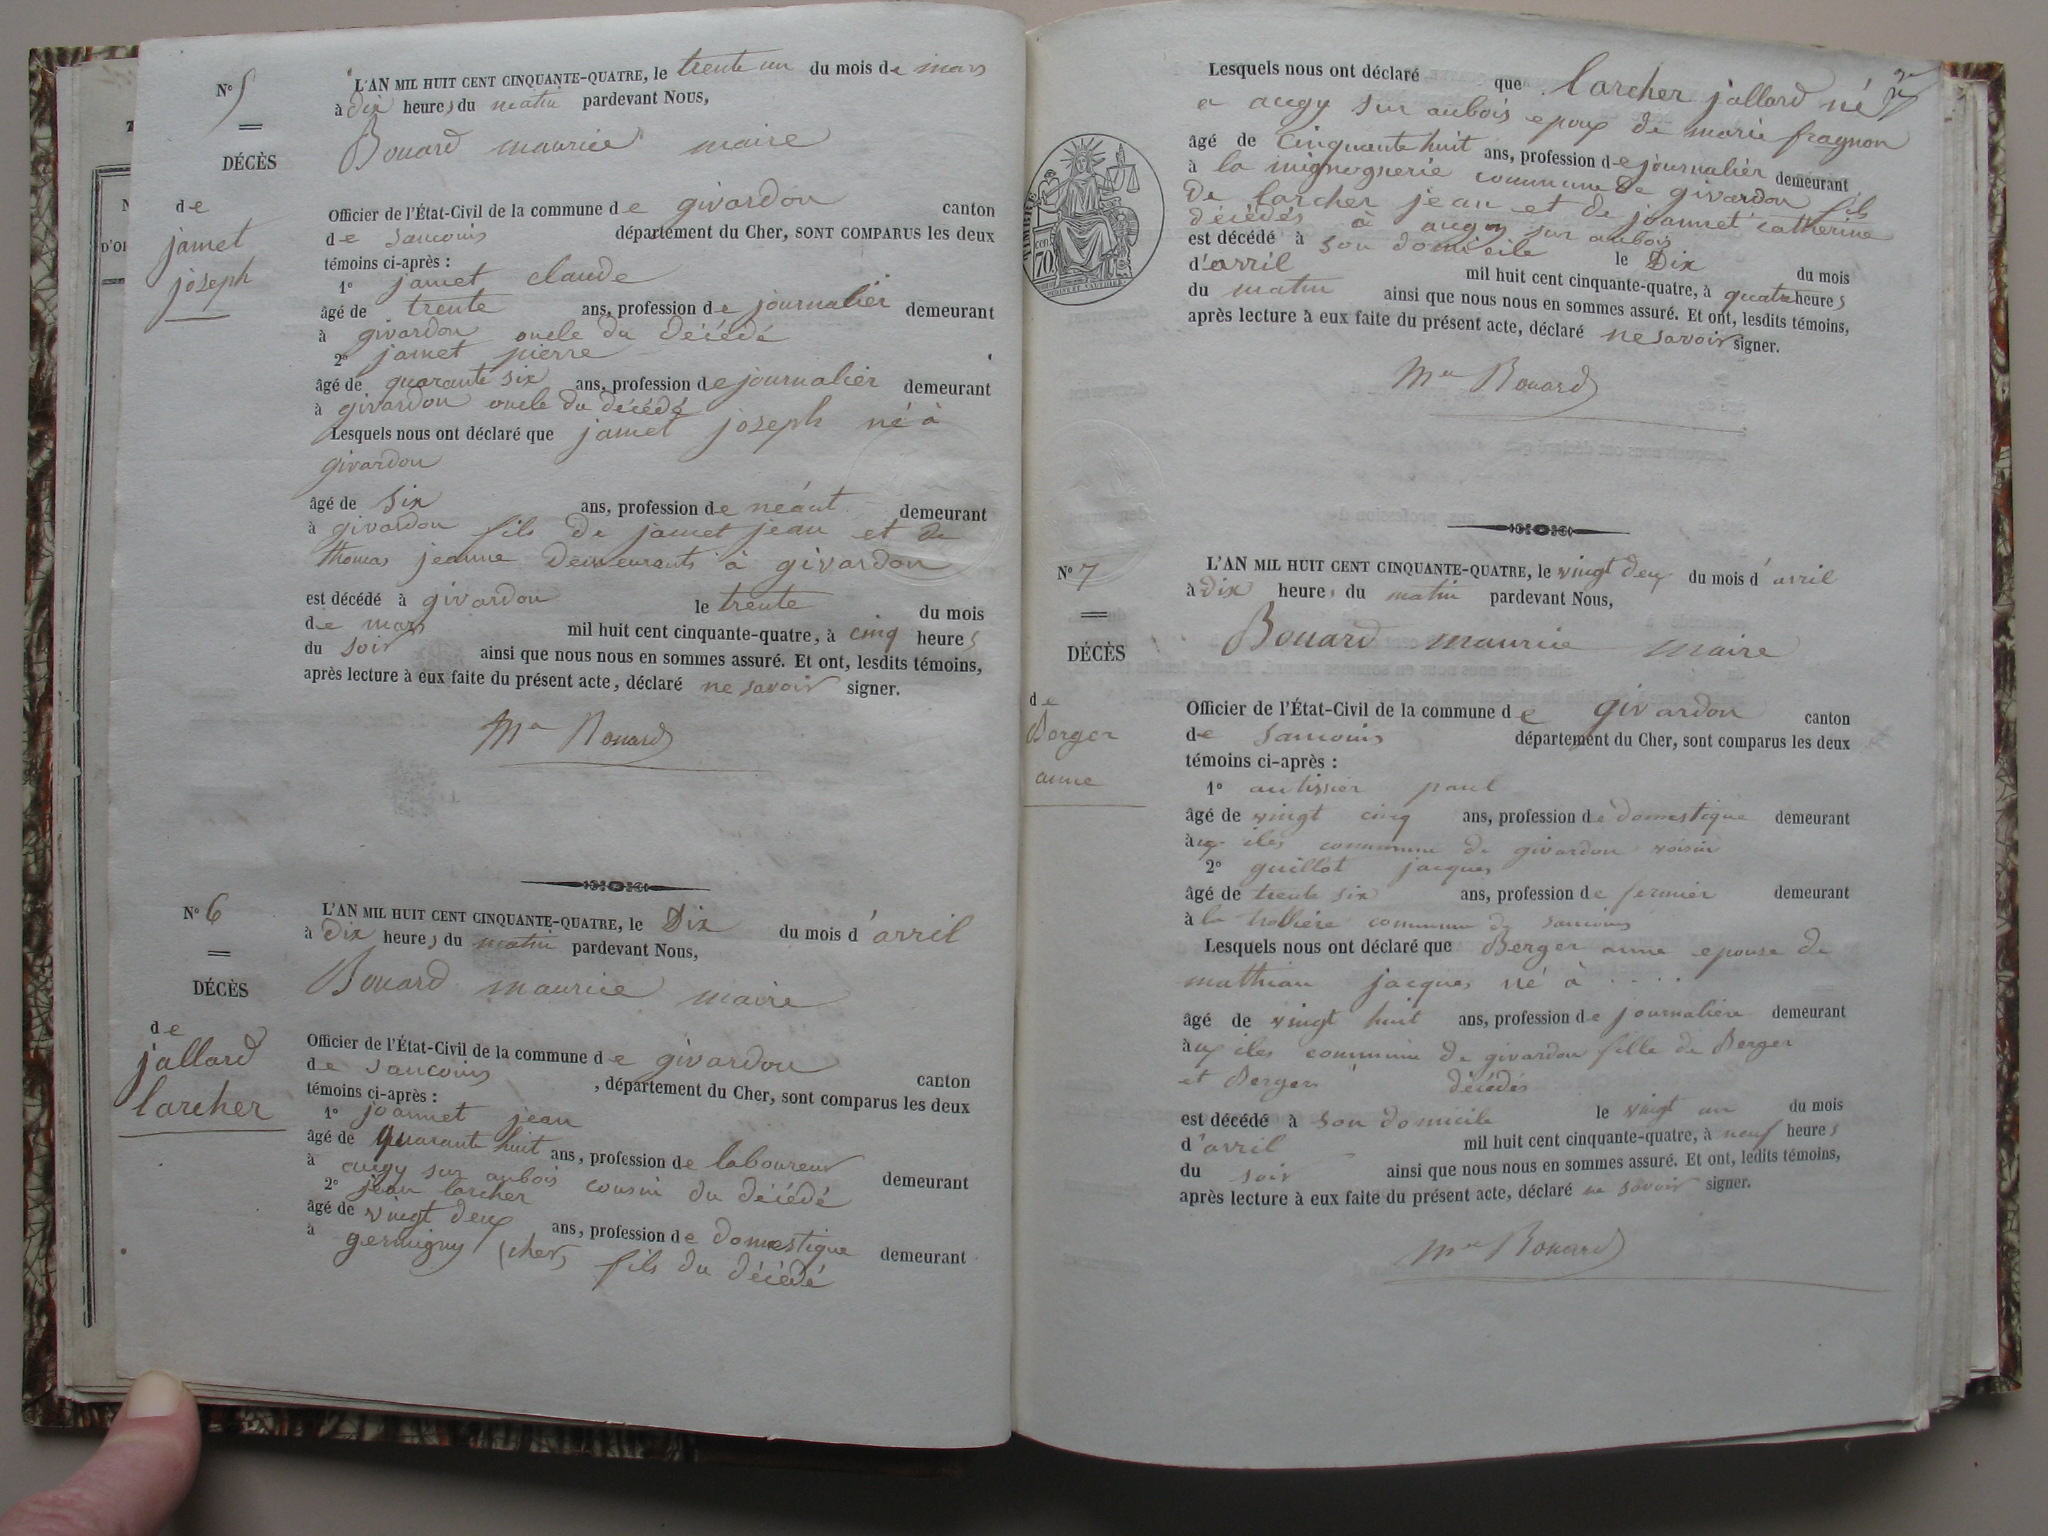 N° 5
L'AN MIL HUIT CENT CINQUANTE-QUATRE, le trente un du mois de mars
à dix heures du matin pardevant NOUS,
Bouard maurice maire
DÉCÈS
de
jamet
joseph
Officier de l'État-Civil de la commune de givardon canton
de sancoins département du Cher, SONT COMPARUS les deux
témoins ci-après :
1° jamet claude
âgé de trente ans, profession de journalier demeurant
à givardon oncle du décédé
2° jamet pierre
âgé de quarante six ans, profession de journalier demeurant
à givardon oncle du décédé
Lesquels nous ont déclaré que jamet joseph né à
givardon
âgé de six ans, profession de néant demeurant
à givardon fils de jamet jean et de
thomas jeanne demeurants à givardon
est décédé à givardon le trente du mois
de mars mil huit cent cinquante-quatre, à cinq heures
du soir ainsi que nous nous en sommes assuré. Et ont, lesdits témoins,
après lecture à eux faite du présent acte, déclaré ne savoir signer.
Mce Bouard
N° 6
L'AN MIL HUIT CENT CINQUANTE-QUATRE, le Dix du mois d'avril
à Dix heures du matin pardevant Nous,
Bouard maurice maire
DÉCÈS
de
jallard
larcher
Officier de l'État-Civil de la commune de givardon canton
de sancoins , département du Cher, sont comparus les deux
témoins ci-après :
1° joannet jean
âgé de quarante huit ans, profession de laboureur demeurant
à augy sur aubois cousin du décédé
2° jean larcher
âgé de vingt deux ans, profession de domestique demeurant
à germigny (cher) fils du décédé
Lesquels nous ont déclaré que larcher jallard né
a augy sur aubois epoux de marie fragnon
âgé de cinquante huit ans, profession de journalier demeurant
à la mignognerie commune de givardon fils
de larcher jean et de joannet catherine
décédés à augy sur aubois
est décédé à son domicile le Dix du mois
d'avril mil huit cent cinquante-quatre, à quatre heures
du matin ainsi que nous nous en sommes assuré. Et ont, lesdits témoins,
après lecture à eux faite du présent acte, déclaré ne savoir signer.
Mce Bouard
TIMBRE
70
N° 7
L'AN MIL HUIT CENT CINQUANTE-QUATRE, le vingt deux du mois d'avril
à Dix heures du matin pardevant Nous,
Bouard maurice maire
DÉCÈS
de
Berger
anne
Officier de l'État-Civil de la commune de givardon canton
de sancoins département du Cher, sont comparus les deux
témoins ci-après :
1° autissier paul
âgé de vingt cinq ans, profession de domestique demeurant
àux iles commune de givardon voisin
2° guillot jacques
âgé de trente six ans, profession de fermier demeurant
à la commune de sancoins
Lesquels nous ont déclaré que Berger anne epouse de
mathiau jacques né à . . . .
âgé de vingt huit ans, profession de journalière demeurant
àux iles commune de givardon fille de Berger
et Berger décédés
est décédé à son domicile le vingt un du mois
d'avril mil huit cent cinquante-quatre, à neuf heures
du soir ainsi que nous nous en sommes assuré. Et ont, ledits témoins,
après lecture à eux faite du présent acte, déclaré ne savoir signer.
Mce Bouard